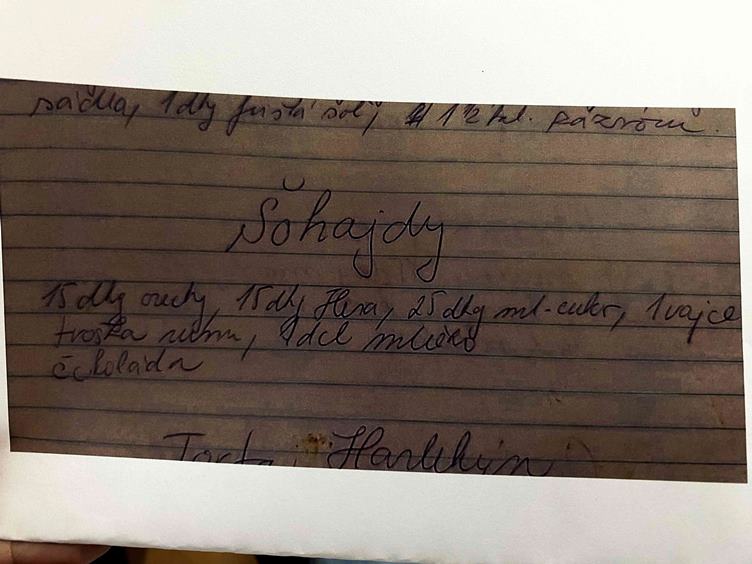 sádla, 1 dkg
Šohajdy
15 dkg orechy, 15 dkg Hera, 25 dkg ml-cukr, 1 vajce
troška rumu, 1 dcl mlieko
čokoláda
Torta Harlekýn